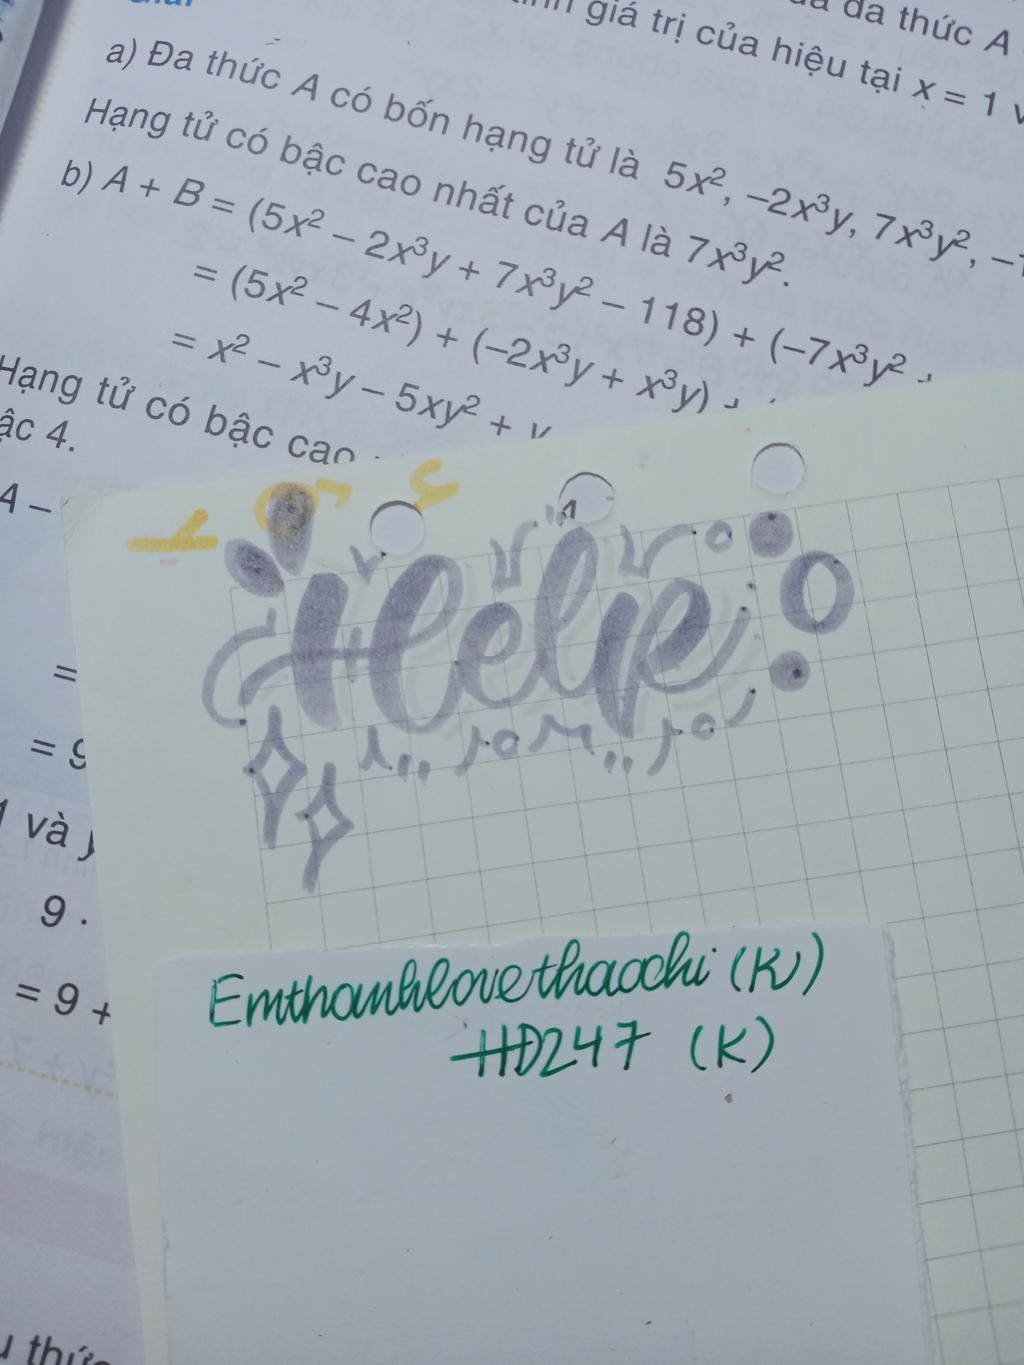 giá trị của hiệu tại x = 1
đa thức A
a) Đa thức A có bốn hạng tử là 5x², –2x³y, 7x³y²,
Hạng tử có bậc cao nhất của A là 7x³y².
b) A + B = (5x² – 2x³y + 7x³y² – 118) + (–7x³y²
= (5x² – 4x²) + (–2x³y + x³y)
= x² – x³y – 5xy² +
Hạng tử có bậc cao
bậc 4.
A –
=
= 9
và
9 .
= 9 +
Help
Emthanhlovethaochi (K)
HĐ247 (K)